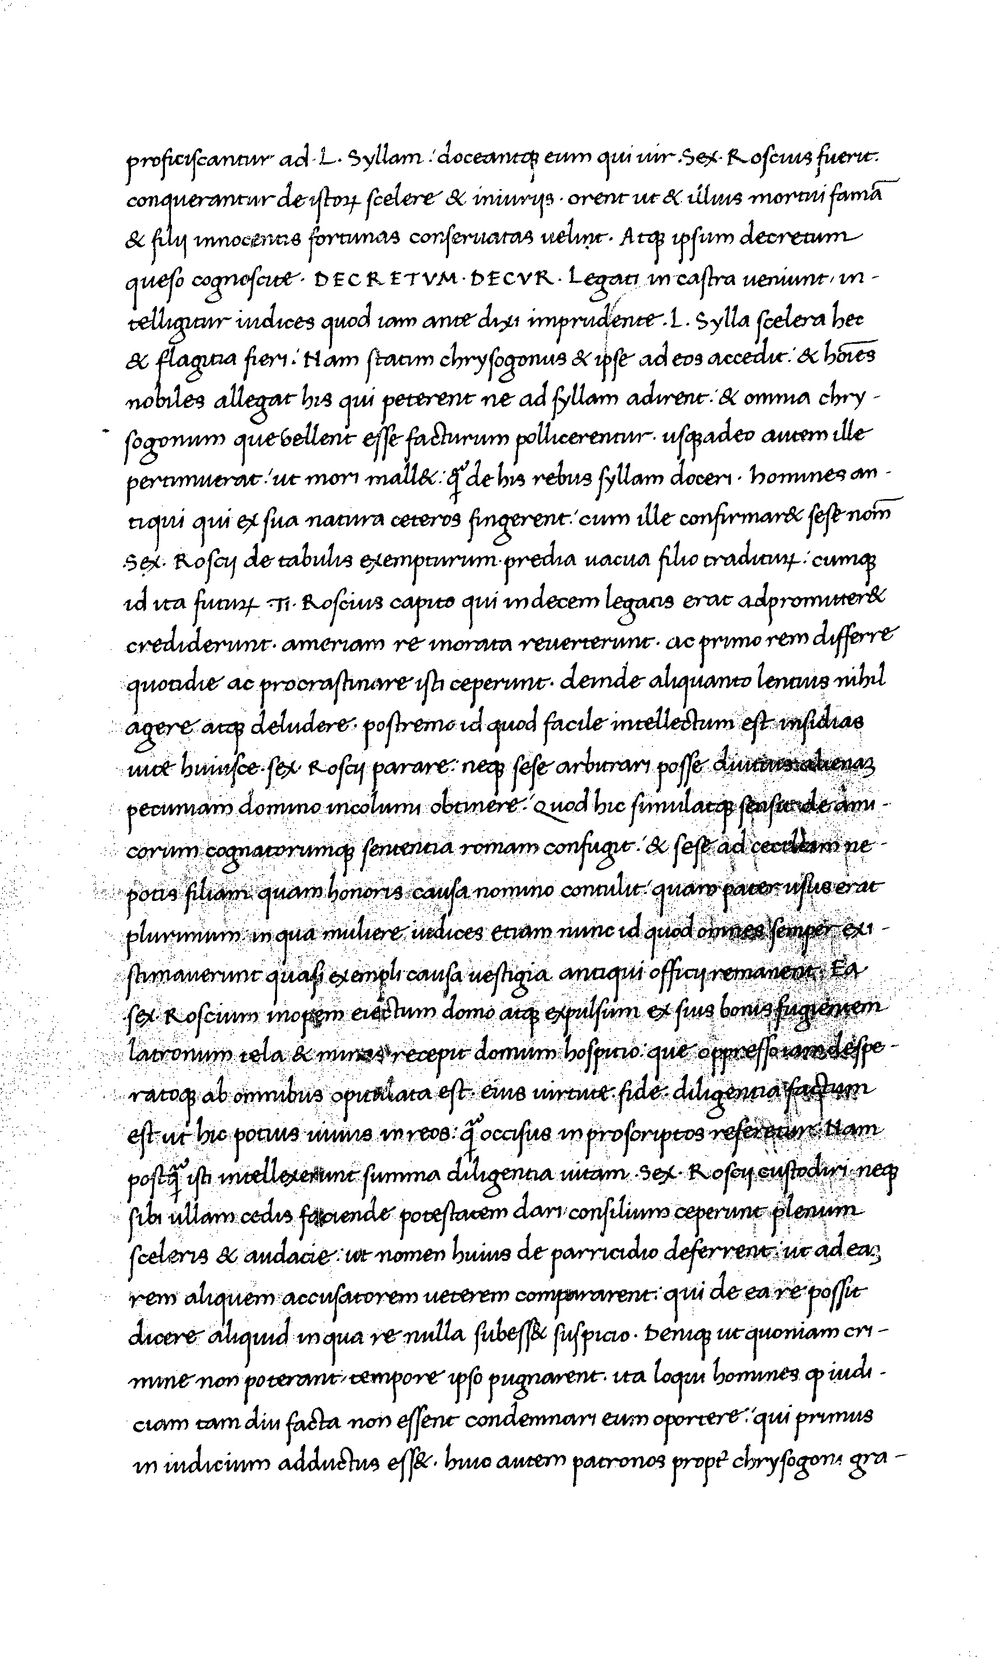 proficiscantur ad · L · Syllam : doceantq; eum qui uir · Sex · Roscius fuerit :
conquerantur de istoꝝ scelere & iniuriis · orent ut & illius mortui famā
& filii innocentis fortunas conseruatas uelint · Atq; ipsum decretum
queso cognoscite · DECRETVM · DECVR · Legati in castra ueniunt · in-
telligitur iudices quod iam ante dixi imprudente · L · Sylla scelera hec
& flagitia fieri : Nam statim chrysogonus & ipse ad eos accedit : & hoīes
nobiles allegat his qui peterent ne ad syllam adirent : & omnia chry-
sogonum que uellent esse facturum pollicerentur · usq; adeo autem ille
pertimuerat : ut mori mall& : q̃ de his rebus syllam doceri · homines an-
tiqui qui ex sua natura ceteros fingerent : cum ille confirmar& sese nom̄
Sex · Roscii de tabulis exempturum · predia uacua filio traditurꝝ : cumq;
id ita futurꝝ · Ti · Roscius capito qui in decem legatis erat adpromitter&
crediderunt · ameriam re inorata reuerterunt · ac primo rem differre
quotidie ac procrastinare isti ceperunt · deinde aliquanto lentius nihil
agere atq; deludere · postremo id quod facile intellectum est insidias
uite huiusce · sex Roscii parare : neq; sese arbitrari posse diutius alienaꝫ
pecuniam domino incolumi obtinere : Quod hic simulatq; sensit · de ami-
corum cognatorumq; sententia romam confugit : & sese ad ceciliam ne-
potis filiam quam honoris causa nomino contulit : quam pater usus erat
plurimum in qua muliere iudices etiam nunc id quod omnes semper exi-
stimauerunt quasi exempli causa uestigia antiqui officii remanent : Ea
sex · Roscium inopem eiectum domo atq; expulsum ex suis bonis fugientem
latronum tela & minas recepit domum hospitio : que oppresso iam despe-
ratoq; ab omnibus opitulata est · eius uirtute · fide · diligentia factum
est ut hic potius uiuus in reos : q̃ occisus in proscriptos referetur : Nam
postq̃ isti intellexerunt summa diligentia uitam · Sex · Roscii custodiri · neq;
sibi ullam cedis faciende potestatem dari consilium ceperunt plenum
sceleris & audacie : ut nomen huius de parricidio deferrent : ut ad eaꝫ
rem aliquem accusatorem ueterem compararent : qui de ea re possit
dicere aliquid in qua re nulla subess& suspicio · Deniq; ut quoniam cri-
mine non poterant · tempore ipso pugnarent · ita loqui homines ꝙ iudi-
ciam tam diu facta non essent condemnari eum oportere : qui primus
in iudicium adductus ess& · huic autem patronos propt̃ chrysogoni gra-